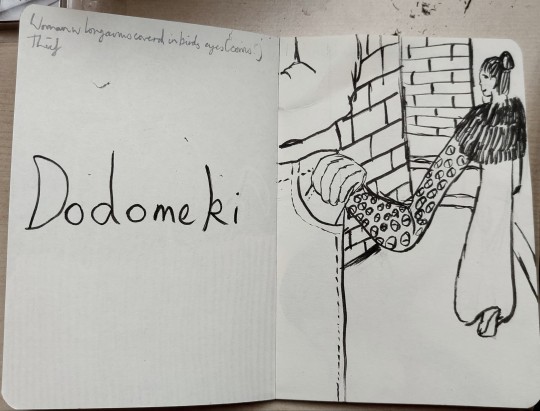 Woman w long arms covered in birds eyes ("coins")
Thief
Dodomeki